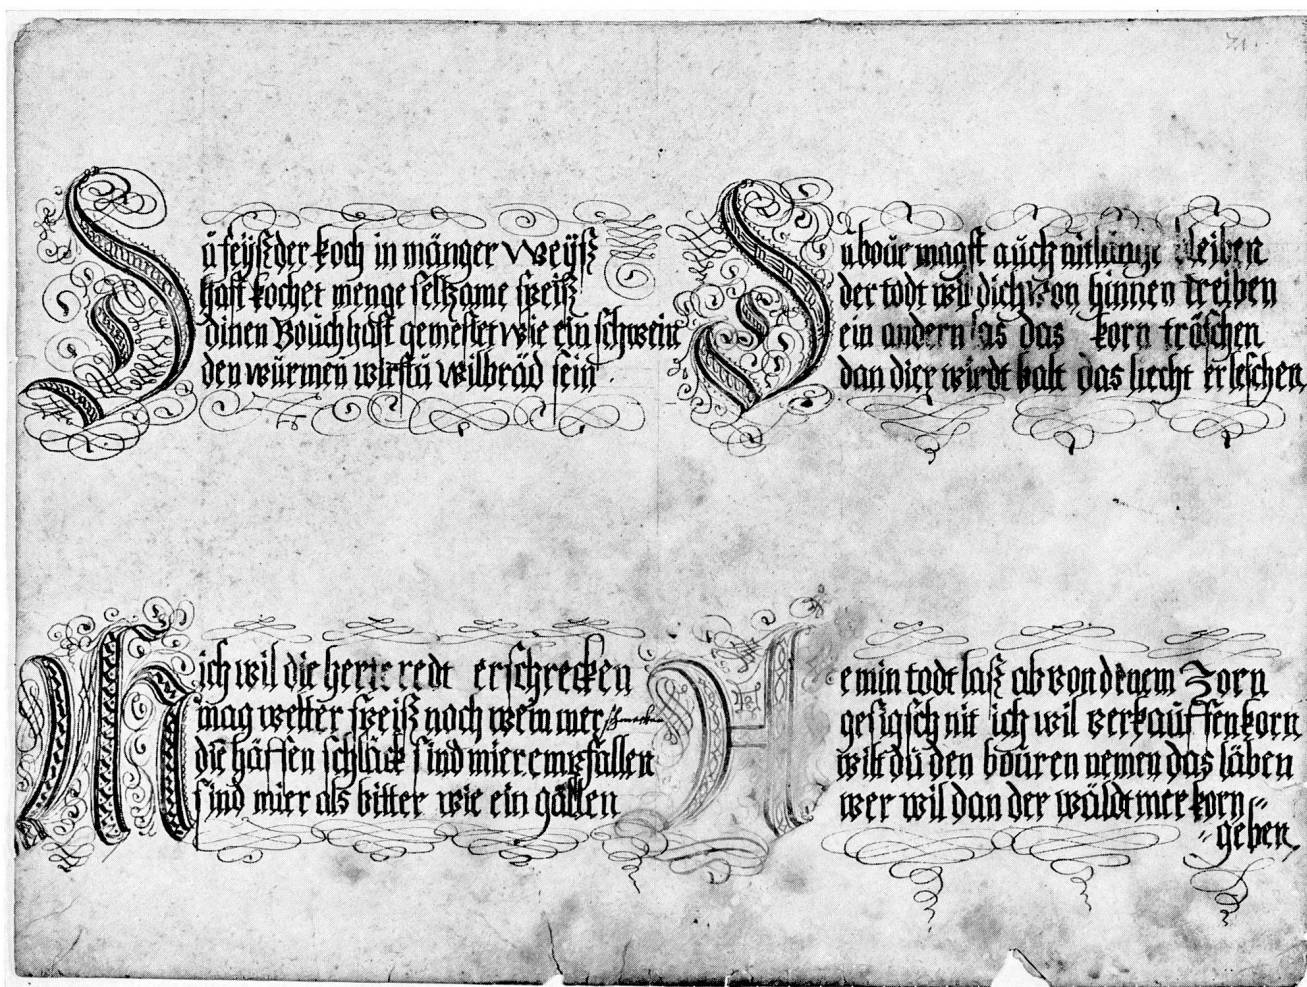 Dů feÿßder koch in mänger weÿß
hast kochet menge seltzame speiß
dinen Bouch hast gemestet wie ein schwein
den würmen wirstü wilbräd sein
Du bour magst auch nit lange bleiben
der todt wil dich von hinnen treiben
ein andern las das korn tröschen
dan dier wirdt balt das liecht erleschen
Mich wil die herte redt erschrecken
mag wetter speiß noch wein mer schmecken
die häffen schläck sind mier empfallen
sind mier als bitter wie ein gallen
He min todt laß ab von denem Zorn
gesigsch nit ich wil verkauffen korn
wilt dü den bouren nemen das läben
wer wil dan der wäldt mer korn
geben